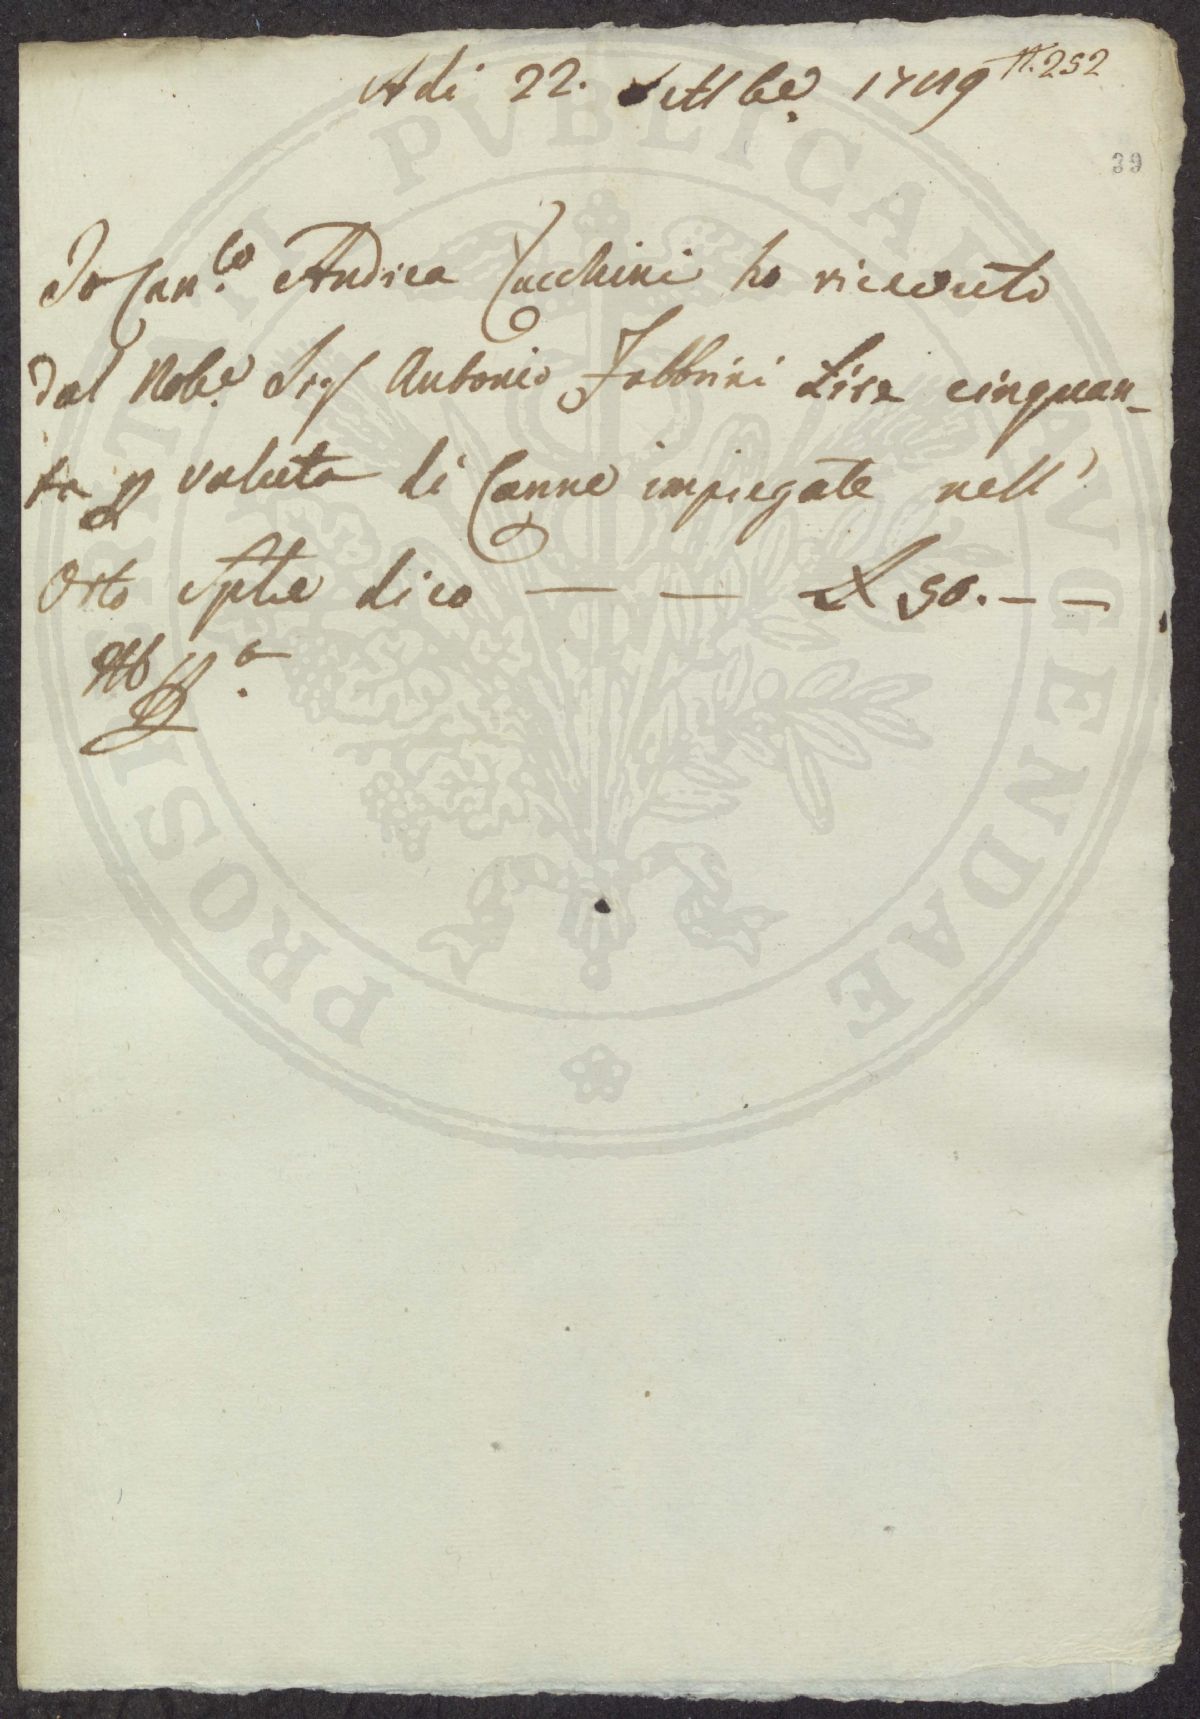 Adi 22. Settbe. 1749 N. 252
39
Io Can.co Andrea Cacchini ho riceuuto
dal Nobe. Sig Antonio Fabbrini Lire cinquan-
ta p valuta di Canne impiegate nell'
Orto dico — — L 50. — —
PROSPERITATI PVBLICAE AVGENDAE